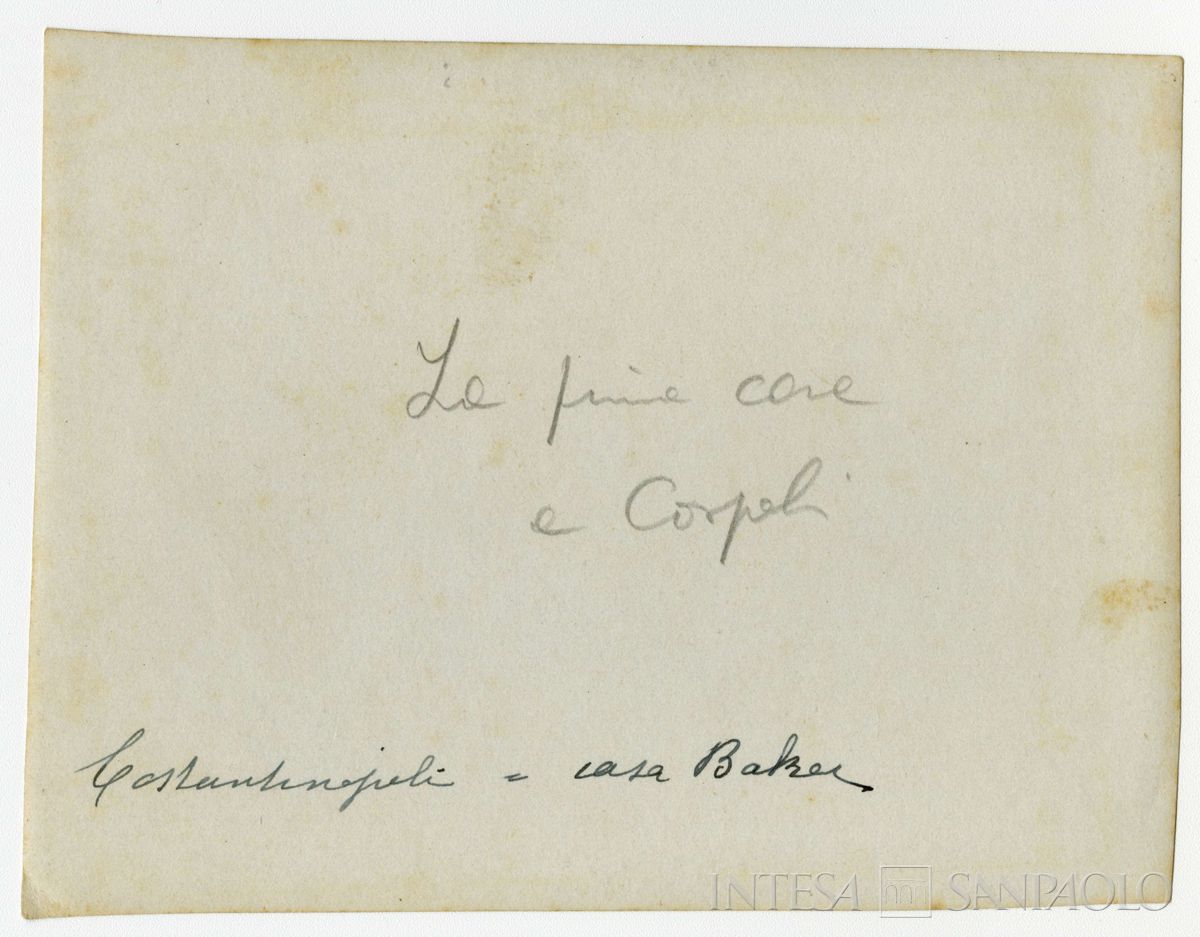 La prima casa
a Cospoli
Costantinopoli = casa Baker
INTESA SANPAOLO